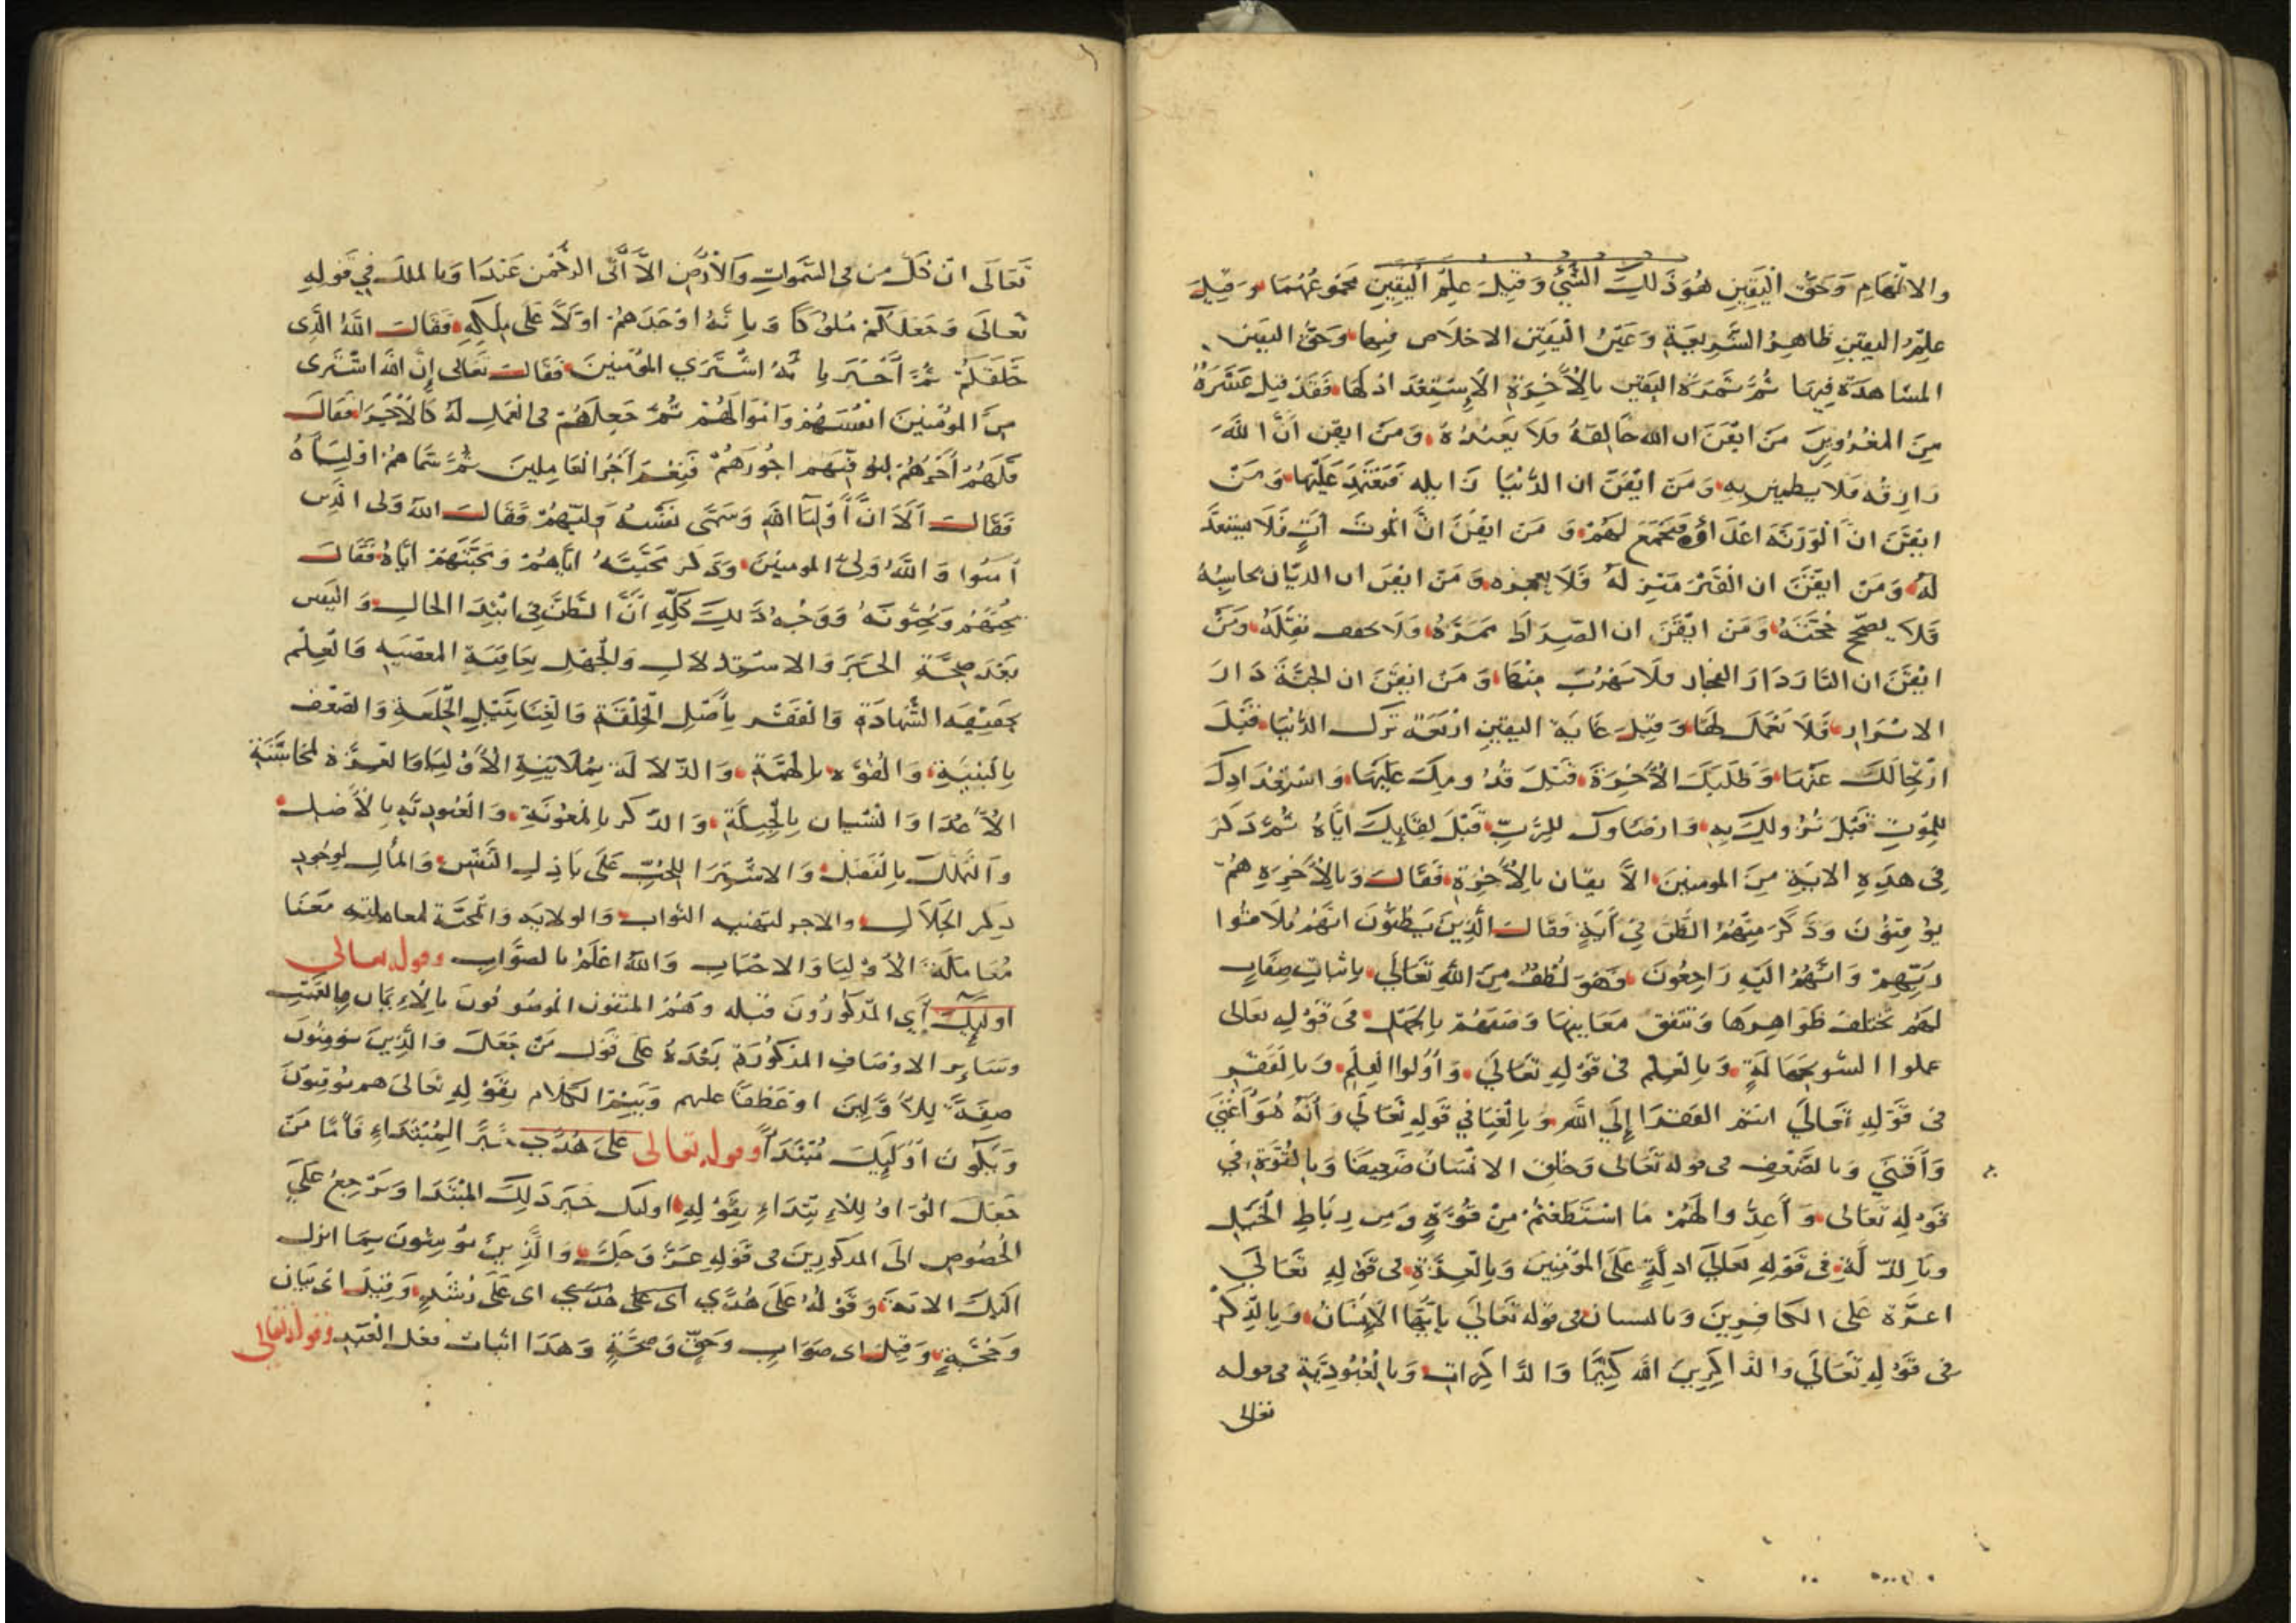 والالهام وَحَقّ الْيَقِينِ هُوَ ذَلِكَ الشَّيْ وَقِيلَ عِلِمّ الْيَقِينِ مَجْمُوعُهُمَا وَقِيلَ
عِلِمْ اليقين ظَاهِرُ الشَّرِيعَةِ وَعَيْنُ الْيَقِينِ الاخلَاص فِيهَا وَحَقُّ اليقين
المشَاهدَة فِيهَا ثُمَّ ثَمَرَة اليَقين بالْاخِرَةِ الاسِتِعْدَاد لهَا فَقَدْ قيل عَشَرَةٌ
مِنَ المغْرُورِينَ مَنْ ايْقَنَ ان الله خَالِقهُ فَلَا يَعبُدُهُ وَمَنْ ايقن انَّ اللهَ
رَازِقُه فَلَا يطمين بِهِ وَمَن ايْقَنَ ان الدُّنْيَا زَايله فَيَعْتَمِدَ عَلَيْهَا وَمَنْ
ايْقَنَ انَّ الْوَرَثَه اعْدَاؤه فَيَجْمَع لَهُمْ وَ مَن ايقَنَ انَّ الموتَ آتٍ فَلَا يستعدَّ
لَهُ وَمَنْ ايْقَنَ ان الْقَبْرَ مَنْزِلهُ فَلَا يعمره وَمَنْ ايْقَنَ ان الديّان يحاسِبُهُ
فَلَا يصَحّحِ حُجَّتَهُ وَمَن ايْقَنَ ان الصِّرَاطَ مَمَرّهُ وَلَا يخفف ثقِلَهُ وَمَنْ
ايْقَنَ ان النَّارَ دَارَ الفجار فلَا يَهْرُبَ مِنْهَا وَ مَن ايقَنَ ان الجنَّةَ دَارَ
الابْرَارِ فَلَا يَعْمَل لهَا وَقِيلَ غَايَة اليقينِ ارْبَعَة تركَ الدُّنْيَا قَبْلَ
ارْتِحَالكَ عَنْهَا وَطَلَبكَ الْاخِرَةَ قَبْلَ قدُومِكَ عَلَيهَا وَاسْتِعْدَادكَ
للْمِوْتِ قَبْلَ نزُولكَ بِهِ وَارضَاوكَ للِرَّبِّ قَبْلَ لِقَايكَ ايَّاهُ ثُمَّ ذَكَرَ
فِى هَذِهِ الايَةِ مِنَ المومنِينَ الايقَان بالْاخِرَةِ فَقَالَ وَبالْاخِرَةِ هُمْ
يوقِنُونَ وَذَكَرَ مِنْهُمْ الظَّنّ فِيْ آيَةٍ فَقَالَ الَّذِينَ يَظُنُّونَ انَّهُمْ مُلَاقُوا
رَبِّهِمْ وَانّهُمْ اليَهِ رَاجِعُونَ فَهُوَ لُطْفٌ مِنَ اللهِ تَعَالَى باثبَاتِ صِفَاتٍ
لَهُم تَختلفُ ظَوَاهِرهَا وَتتَفق مَعَانيهَا وَصَفَهُمْ بالجهَل فى قَوْلِه تعَالى
عملوا السّو بجَهَالَةٍ وَبِالعِلم فى قَوْلِهِ تَعَالَى وَأولُوا الْعِلْم وَبِالفَقْر
فى قَوْلِهِ تَعَالَى انتم الفقرَا إِلَى اللهِ وَبِالْغِنَا فِي قَولِهِ تَعَالَى وَأنّهُ هُوَ أَغْنَى
وَأَقْنَى وَبالضّعْفِ فى قوله تَعَالى وَخُلِقَ الانْسَانُ ضَعِيفًا وَبِالْقُوّةِ في
قَوْلِهِ تَعَالى وَ أَعِدُّوا لَهُمْ مَا اسْتَطَعْتُمْ مِنْ قُوَّةٍ وَمِن رِبَاطِ الْخَيلِ
وَبِالذلّةِ فى قَوْلِهِ تَعَالَى اذِلّةٍ عَلَى المُؤْمِنِينَ وَبِالْعِزَّةِ فى قَوْلِهِ تَعَالَى
اعزَّة عَلَى الكافرِينَ وبالنسيان فى قوله تعَالَى يَا أَيُّهَا الْإِنْسَانُ وَبِالذِّكْر
فى قَوْلِهِ تَعَالَي وَالذاكِرِينَ الله كَثِيرًا وَالذَّاكِرَاتِ وَبِالْعُبُودِيَّةِ فى قوله
تعالى
تَعَالَى انْ كُلّ من فى السَّمَواتِ وَالْأَرْضِ الَّا أَتَى الرَّحْمَنِ عَبْدَا وَبالملكَ فِي قَوْلِهِ
تَعالَى وَجَعَلَكُمْ مُلُوْكًا وَبِانّهُ اوْجَدَهُمْ اوّلًا عَلَى مِلكِهِ فَقَالَ اللهُ الَّذِى
خَلَقَكُمْ ثُمّ أَخْبَرَ بِانّهُ اشْتَرَي المُؤْمِنِينَ فَقَالَ تَعَالى إِنَّ اللهَ اشْتَرى
مِنَ المُؤْمِنينَ انفُسَهُمْ وَامْوَالَهُمْ ثُمّ جَعلَهُمْ فى العَمَلِ لَهُ كَالْأُجَرَا فَقَالَ
فَلَهُمْ أَجْرُهُمْ ليُوَفّيَهم اجُورَهُمْ فَنِعْمَ أَجْرُ الْعَامِلِينَ ثُمَّ سَمَّاهُمْ اوْلِيَآءُ
فَقَالَ أَلَا انَّ أَوْلِيَآ اللهِ وَسَمَّى نَفْسَهُ وَليّهُمْ فَقَالَ اللهَ وَلى الَّذِين
آمنُوا وَ اللهُ وَلىُّ المومنينَ وَذَكَرَ مَحَبَّتَهُ ايَّاهُمْ وَمَحَبَّتَهُمْ ايَّاهُ فَقَالَ
يُحِبُّهُمْ وَيُحِبُّونَهُ وَوَجْهُ ذَلِكَ كُلِّهِ أَنَّ الظَّنَّ فِي ابْتِدَا الحَالِ وَ اليقين
بَعْدَ صِحَّةِ الخبَرَ وَالاستِدلَالِ وَالْجَهْلِ بعَاقِبَةِ المعصيه وَالْعِلْم
بحَقِيقَه الشّهَادَةِ وَالْفَقْر بأصْلِ الْخِلْقَةِ وَالْغِنَا بِنَيْلِ الْخِلْعَةِ وَالضّعْف
بِالْبنْيَةِ وَالْقُوّه بِالْهِمَّةِ وَالذّلَالَة بِمُلَايَنَةِ الْأَوْلِيَا وَالعِزَّة لمخاشَنَةِ
الْأَعْدَا وَالنسْيان بِالْجِبِلّةِ وَالذِّكر بِالمعُونَةِ وَالْعُبُودِيّه بِالْأَصْلِ
وَالتّمْلكَ بِالْفَضْلِ وَالاشْتِرَا للحُبِّ عَلَى بَاذِلِ النَّفْسِ وَالمالِ لوجُودِ
ذِكر الْجَلَالِ والاجر لتهنيه الثواب وَالولَايَه وَالْمَحَبَّة لمعاملته مَعَنَا
مُعَامَلَة الْأَوْلِيَا وَالاحْبَابِ وَاللهُ اعْلَمُ بِالصَّوَابِ وقوله تعالى
اولئِكَ أَيِ المَذْكُورُونَ قبله وَهُمْ المتقون الموصُوفُونَ بِالْإِيمَان بالغَيْبِ
وسَاير الاوصَافِ المَذْكُورَة بَعْدَهُ عَلَى قَوْل مَنْ جَعَلَ وَالَّذِينَ يؤمنُونَ
صِفَةً لِلْأَوَّلِينَ اوْ عَطْفًا عليهم وَيَتِمّ الكَلَام بِقَوْلِهِ تَعَالَى هم يُوقِنُونَ
وَيَكُونَ أُوْلَئِكَ مُبْتَدَأً وقوله تعالى عَلَى هُدًى خَبَر المُبْتَدَاءِ فَأَمَّا مَنْ
جَعَلَ الْوَاوَ لِلْابتِدَاءِ بِقَوْلِهِ اولئك خَبَر ذَلِكَ المُبْتَدَا وَيَرْجِعُ عَلَي
الْخصُوصِ الَى المذكورِينَ فى قَوْلِهِ عَزَّ وَجَلَّ وَالَّذِينَ يُؤْمِنُونَ بِمَا انزل
الَيْكَ الايَة وَقَوْلهُ عَلَى هُدًي اى عَلَى هُدًي اى عَلَى رُشْدٍ وَقِيلَ اىْ بَيَانٍ
وَحُجّةٍ وَقِيلَ اى صَوَابٍ وَحَقٍّ وَصِحَّةٍ وَهَذَا اثبَات فعْل الْعَبْدِ وقوله تعالى